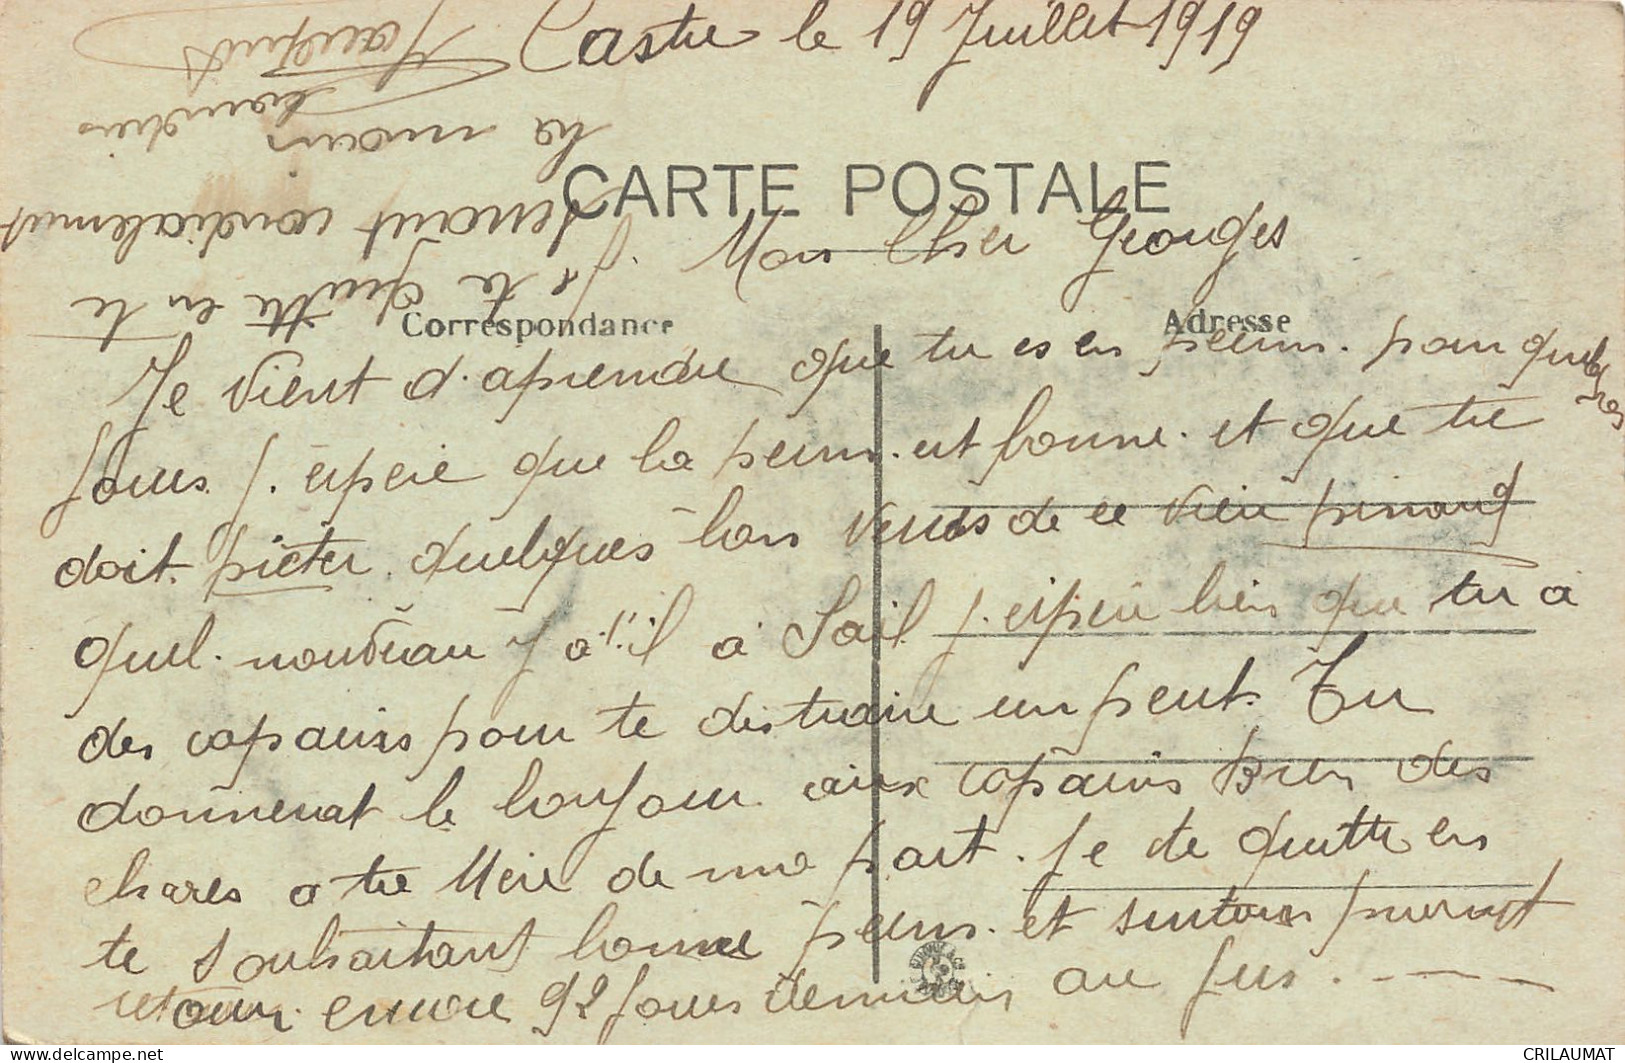 Castre le 19 Juillet 1919
CARTE POSTALE
Mon Cher Georges
Correspondance
Adresse
Je vient d'aprendre que tu es en perm. pour quelques
jours. J. éspere que la perm. est bonne. et que tu
doit. pieter. quelques bon verres de ce vieu pinard
quel. nouveau y a't'il a Sail j. éspere bien que tu a
des copains pour te distraire un peut. Tu
donnerat le bonjour aux copains bien des
choses a ta Mere de ma part. Je te quitte en
te souhaitant bonne perm. et surtout
retour. encore 92 jours demain au jus. - - - -
Je te quitte en te
serrant cordialement
la main